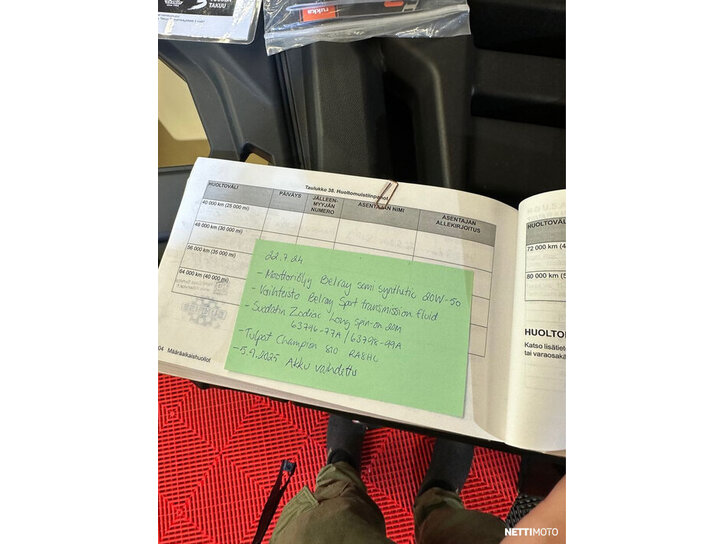 TAKUU
rukka
Taulukko 38. Huoltomuistiinpanot
HUOLTOVÄLI
PÄIVÄYS
JÄLLEEN-
MYYJÄN
NUMERO
ASENTAJAN NIMI
ASENTAJAN
ALLEKIRJOITUS
40 000 km (25 000 mi)
48 000 km (30 000 mi)
56 000 km (35 000 mi)
64 000 km (40 000 mi)
22.7.24
- Moottoriöljy Belray semi synthetic 20W-50
- Vaihteisto Belray Sport transmission fluid
- Suodatin Zodiac Long spin-on
63796-77A / 63798-99A
- Tulpat Champion 810 RA8HC
- 5.9.2025 Akku vaihdettu
04 Määräaikaishuollot
HUOLTOVÄLI
72 000 km (4
80 000 km (5
HUOLTO
Katso lisätie
tai varaosak
NETTIMOTO